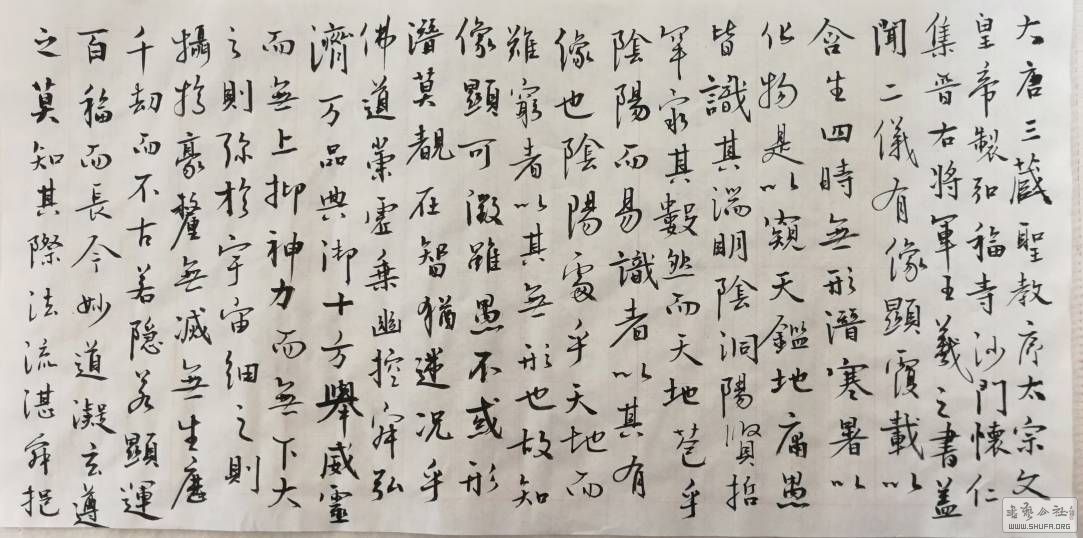 大唐三藏聖教序太宗文
皇帝製弘福寺沙門懷仁
集晉右將軍王羲之書蓋
聞二儀有像顯覆載以
含生四時無形潛寒暑以
化物是以窺天鑑地庸愚
皆識其端明陰洞陽賢哲
罕窮其數然而天地苞乎
陰陽而易識者以其有
像也陰陽處乎天地而
難窮者以其無形也故知
像顯可徵雖愚不或形
潛莫覩在智猶迷況乎
佛道崇虛乘幽控寂弘
濟万品典御十方舉威靈
而無上抑神力而無下大
之則弥於宇宙細之則
攝於豪釐無滅無生歷
千劫而不古若隱若顯運
百福而長今妙道凝玄遵
之莫知其際法流湛寂挹
WWW.SHUFA.ORG